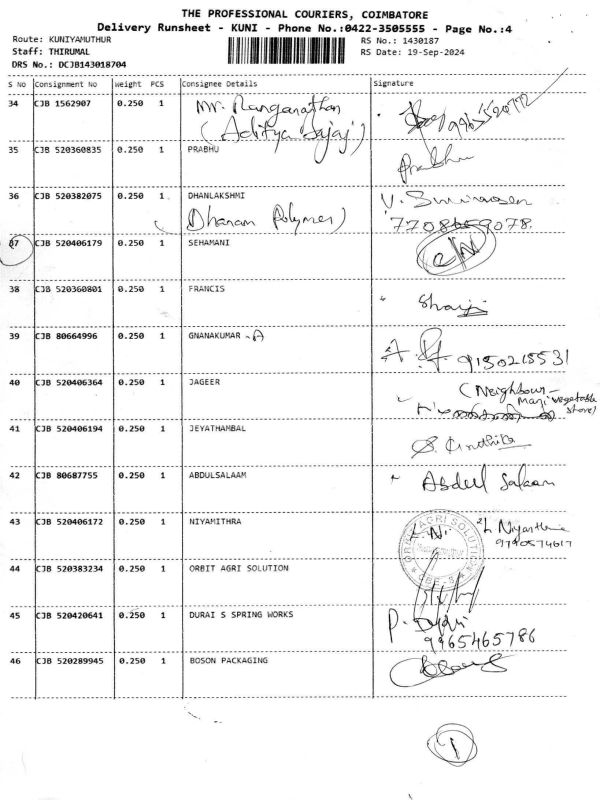 THE PROFESSIONAL COURIERS, COIMBATORE
Delivery Runsheet - KUNI - Phone No.:0422-3505555 - Page No.:4
Route: KUNIYAMUTHUR RS No.: 1430187
Staff: THIRUMAL RS Date: 19-Sep-2024
DRS No.: DCJB143018704
S No Consignment No Weight PCS Consignee Details Signature
34 CJB 1562907 0.250 1 Mr. Ranganathan
(Aditya Bajaj)
35 CJB 520360835 0.250 1 PRABHU Prabhu
36 CJB 520382075 0.250 1 DHANLAKSHMI V. Srinivasen
(Dhanam Polymer) 7708659078.
37 CJB 520406179 0.250 1 SEHAMANI
38 CJB 520360801 0.250 1 FRANCIS
39 CJB 80664996 0.250 1 GNANAKUMAR -A 9150215531
40 CJB 520406364 0.250 1 JAGEER (Neighbour-
Mani vegetable
store)
41 CJB 520406194 0.250 1 JEYATHAMBAL
42 CJB 80687755 0.250 1 ABDULSALAAM Abdul Salaam
43 CJB 520406172 0.250 1 NIYAMITHRA
9790574617
ORBIT AGRI SOLUTION
44 CJB 520383234 0.250 1 ORBIT AGRI SOLUTION
45 CJB 520420641 0.250 1 DURAI S SPRING WORKS
9965465786
46 CJB 520289945 0.250 1 BOSON PACKAGING
1